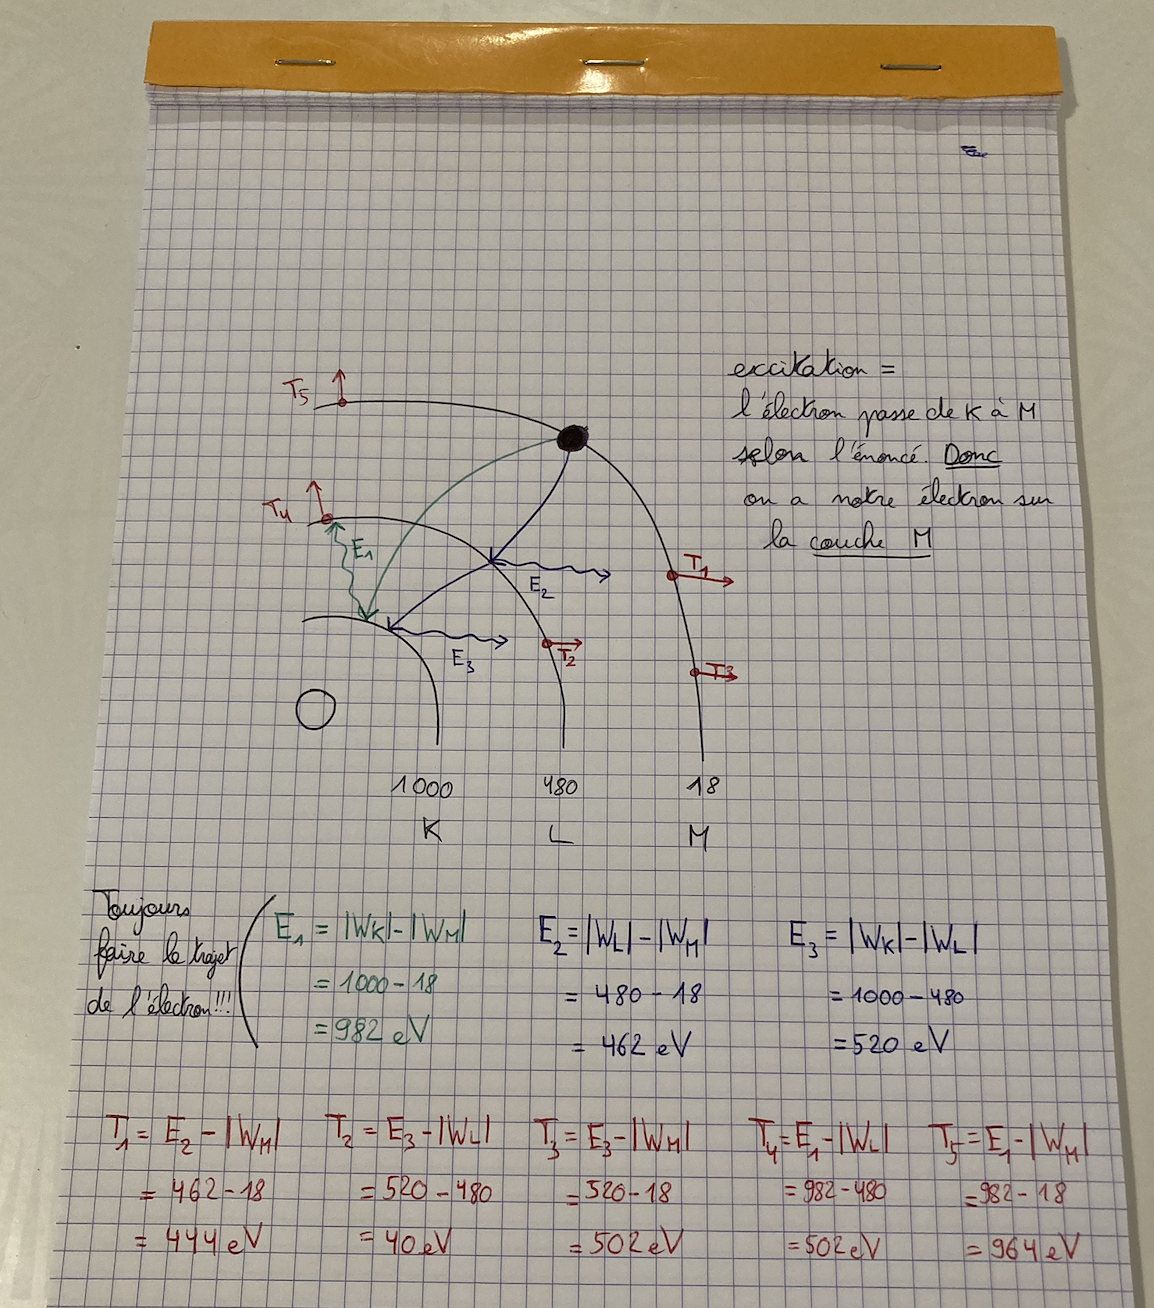 excitation =
l'électron passe de K à M
selon l'énoncé. Donc
on a notre électron sur
la couche M
T5
T4
E1
E2
T1
E3
T2
T3
1000 480 18
K L M
Toujours
faire le trajet
de l'électron!!!
E1 = |WK|-|WM|
= 1000 - 18
= 982 eV
E2 = |WL| - |WM|
= 480 - 18
= 462 eV
E3 = |WK| - |WL|
= 1000 - 480
= 520 eV
T1 = E2 - |WM|
= 462 - 18
= 444 eV
T2 = E3 - |WL|
= 520 - 480
= 40 eV
T3 = E3 - |WM|
= 520 - 18
= 502 eV
T4 = E1 - |WL|
= 982 - 480
= 502 eV
T5 = E1 - |WM|
= 982 - 18
= 964 eV